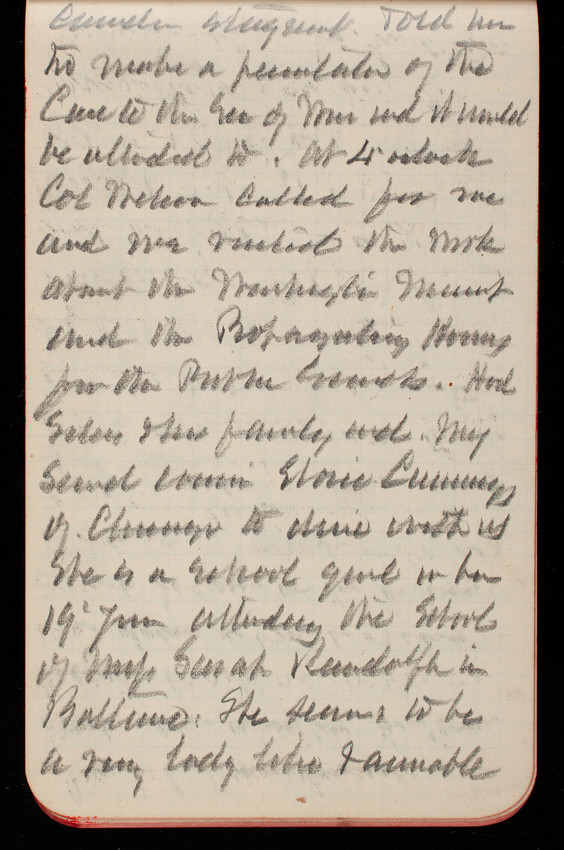 told him
to make a of the
Case to the Sec of War and it would
be attended to. At 4 o'clock
Col Wilson called for me
and we visited the work
about the Washington Monumt
and the Propagating Houses
for the Public Grounds. Had
& her family and My
Second cousin Elsie Cummings
of Chicago to dine with us
She is a School girl in her
19' year attending the School
of Miss Sarah Randolph in
Baltimo. She seems to be
a very lady like & amiable